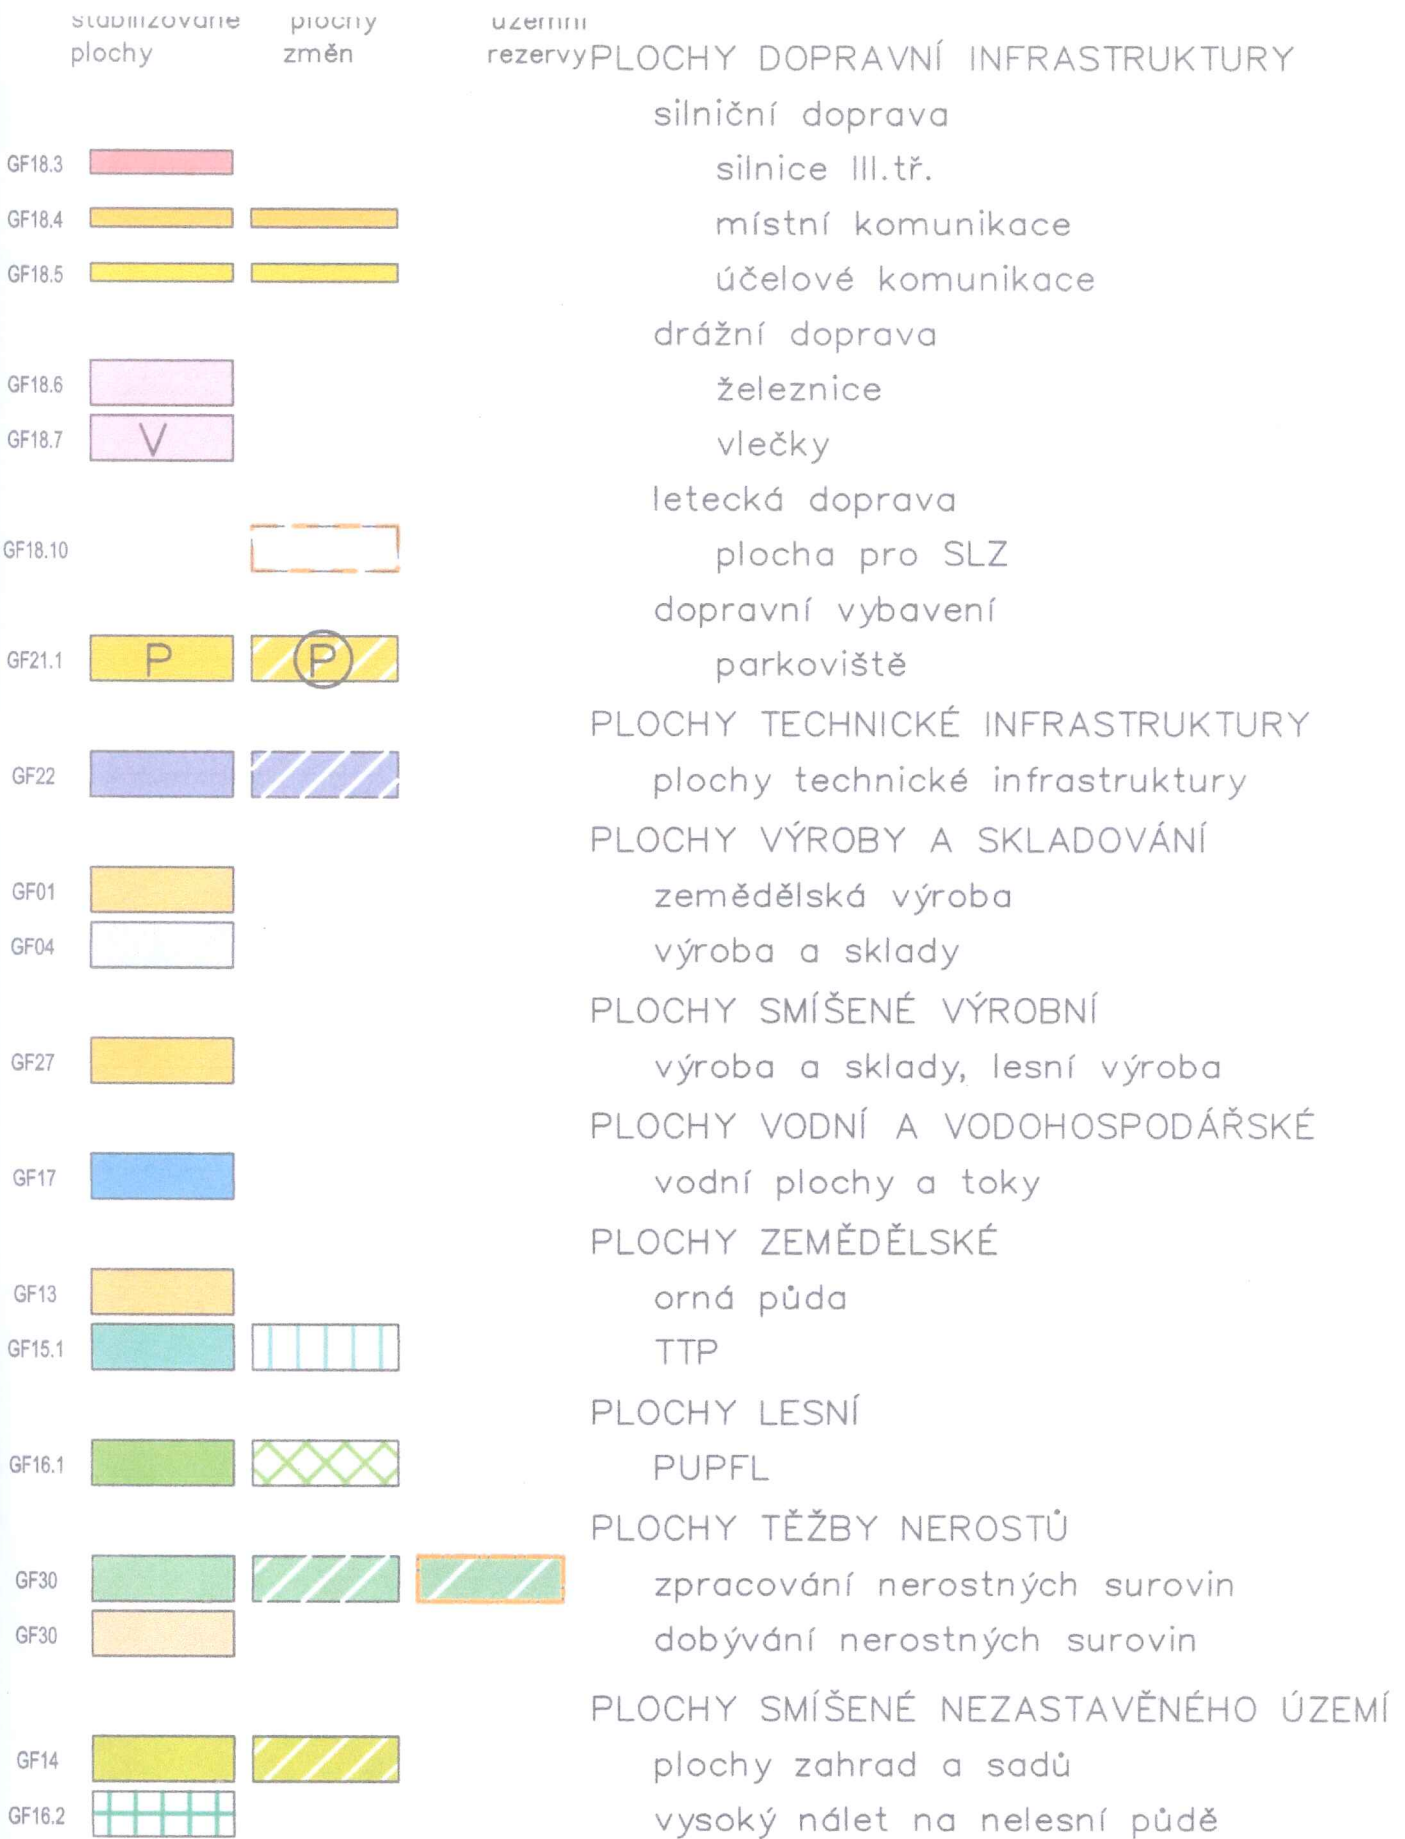 stabilizované plochy územní
plochy změn rezervy PLOCHY DOPRAVNÍ INFRASTRUKTURY
silniční doprava
GF18.3 silnice III.tř.
GF18.4 místní komunikace
GF18.5 účelové komunikace
drážní doprava
GF18.6 železnice
GF18.7 V vlečky
letecká doprava
GF18.10 plocha pro SLZ
dopravní vybavení
GF21.1 P P parkoviště
PLOCHY TECHNICKÉ INFRASTRUKTURY
GF22 plochy technické infrastruktury
PLOCHY VÝROBY A SKLADOVÁNÍ
GF01 zemědělská výroba
GF04 výroba a sklady
PLOCHY SMÍŠENÉ VÝROBNÍ
GF27 výroba a sklady, lesní výroba
PLOCHY VODNÍ A VODOHOSPODÁŘSKÉ
GF17 vodní plochy a toky
PLOCHY ZEMĚDĚLSKÉ
GF13 orná půda
GF15.1 TTP
PLOCHY LESNÍ
GF16.1 PUPFL
PLOCHY TĚŽBY NEROSTŮ
GF30 zpracování nerostných surovin
GF30 dobývání nerostných surovin
PLOCHY SMÍŠENÉ NEZASTAVĚNÉHO ÚZEMÍ
GF14 plochy zahrad a sadů
GF16.2 vysoký nálet na nelesní půdě